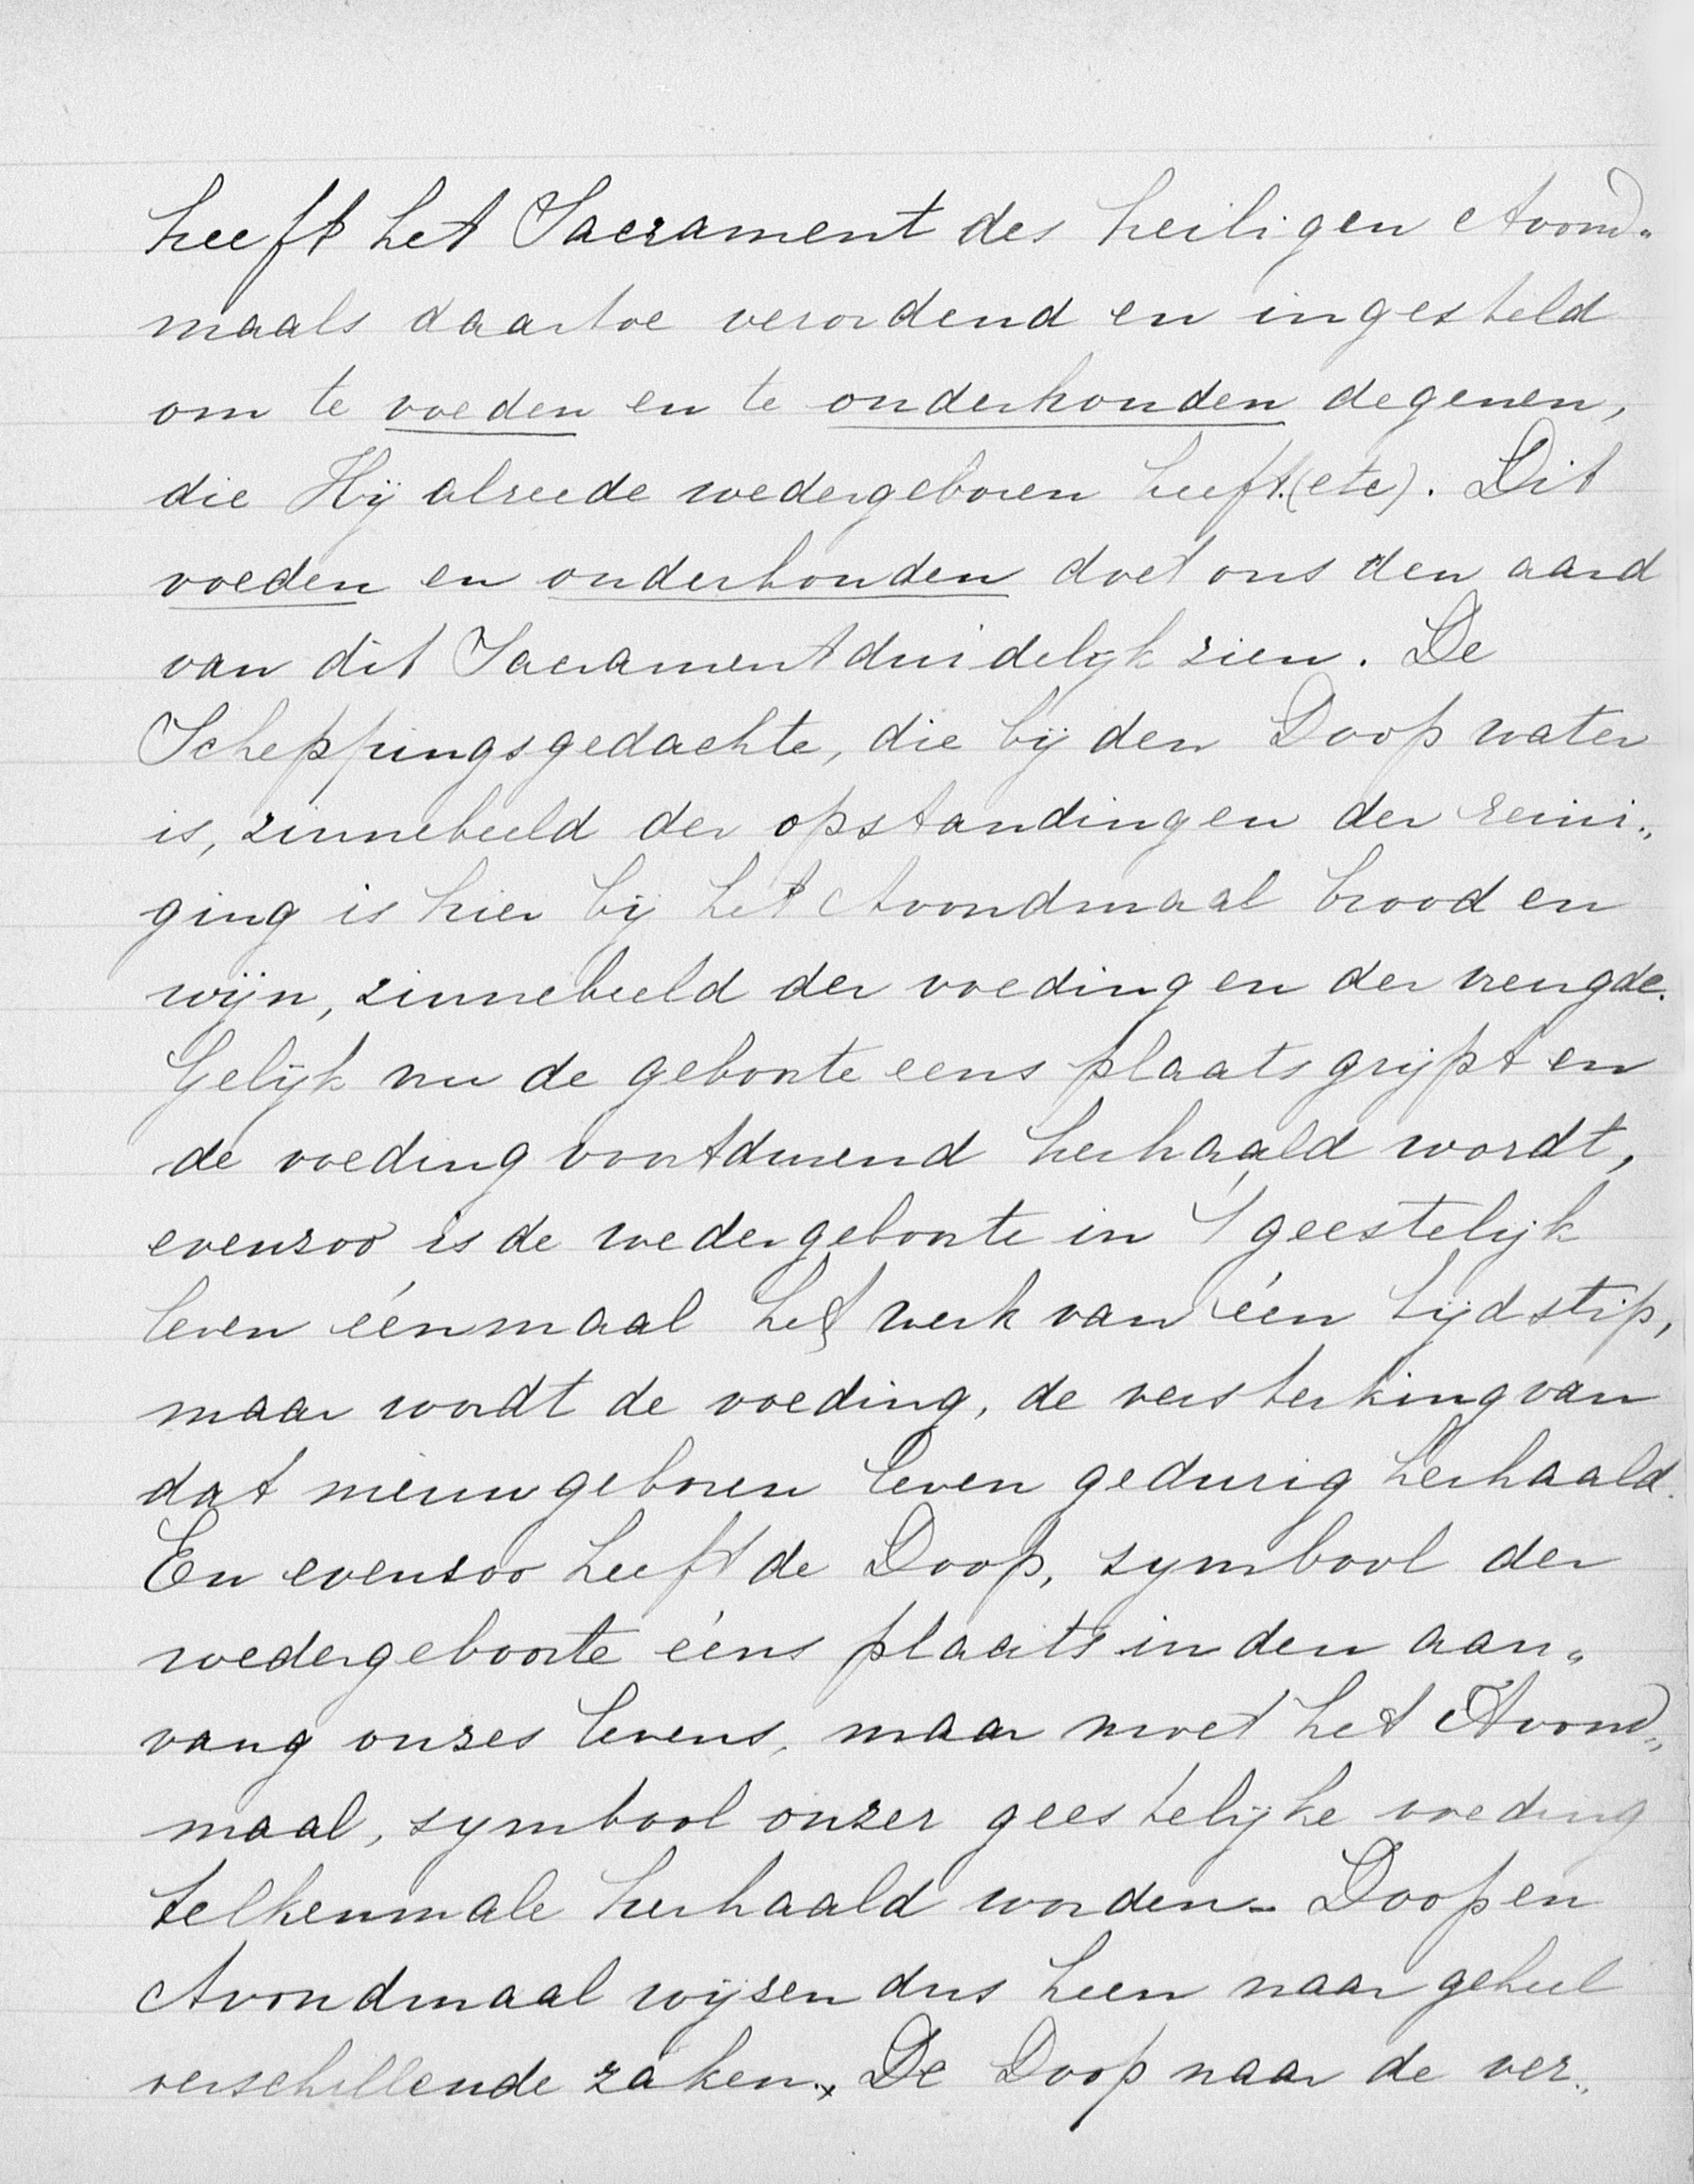 heeft het Sacrament des heiligen Avond„
maals daartoe verordend en ingesteld
om te voeden en te onderhouden degenen,
die Hij alreede wedergeboren heeft.(etc). Dit
voeden en onderhouden doet ons den aard
van dit Sacrament duidelijk zien. De
Scheppingsgedachte, die bij den Doop water
is, zinnebeeld der opstanding en der reini„
ging is hier bij het Avondmaal brood en
wijn, zinnebeeld der voeding en der vreugde.
Gelijk nu de geboorte eens plaats grijpt en
de voeding voortdurend herhaald wordt,
evenzoo is de wedergeboorte in 't geestelijk
leven éénmaal het werk van één tijdstip,
maar wordt de voeding, de versterking van
dat nieuwgeboren leven gedurig herhaald.
En evenzoo heeft de Doop, symbool der
wedergeboorte ééns plaats in den aan„
vang onzes levens, maar moet het Avond„
maal, symbool onzer geestelijke voeding
telkenmale herhaald worden. Doop en
Avondmaal wijzen dus heen naar geheel
verschillende zaken. x De Doop naar de ver„